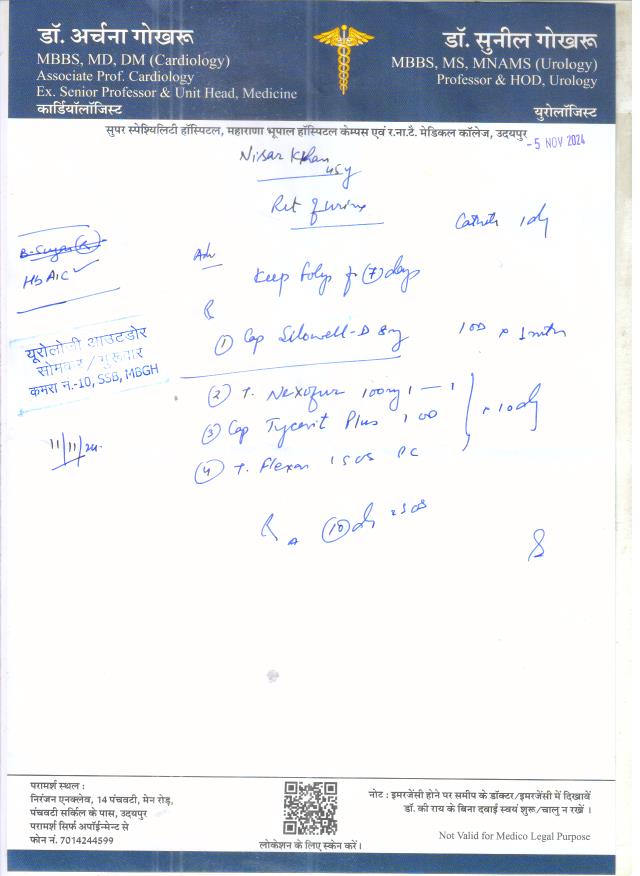 डॉ. अर्चना गोखरू
MBBS, MD, DM (Cardiology)
Associate Prof. Cardiology
Ex. Senior Professor & Unit Head, Medicine
कार्डियॉलॉजिस्ट
डॉ. सुनील गोखरू
MBBS, MS, MNAMS (Urology)
Professor & HOD, Urology
यूरोलॉजिस्ट
सुपर स्पेश्यिलिटी हॉस्पिटल, महाराणा भूपाल हॉस्पिटल केम्पस एवं र.ना.टै. मेडिकल कॉलेज, उदयपुर
- 5 NOV 2024
Nisar Khan
45y
Ret of urine
B-Sugar (R)
HbA1C ✓
Adv
Keep Folys for (7) days
यूरोलोजी आउटडोर
सोमवार / गुरूवार
कमरा न.-10, SSB, MBGH
11/11/24
① Cap Silowell-D 8mg 1OD x 1mth
② T. Nexofur 100mg 1 — 1
③ Cap Tycerit Plus 1 OD
x 10d
④ T. Flexon 1 SOS PC
10 d SOS
परामर्श स्थल :
निरंजन एनक्लेव, 14 पंचवटी, मेन रोड़,
पंचवटी सर्किल के पास, उदयपुर
परामर्श सिर्फ अपॉईन्मेन्ट से
फोन नं. 7014244599
लोकेशन के लिए स्केन करें।
नोट : इमरजेंसी होने पर समीप के डॉक्टर/इमरजेंसी में दिखावें
डॉ. की राय के बिना दवाई स्वयं शुरू/चालु न रखें ।
Not Valid for Medico Legal Purpose